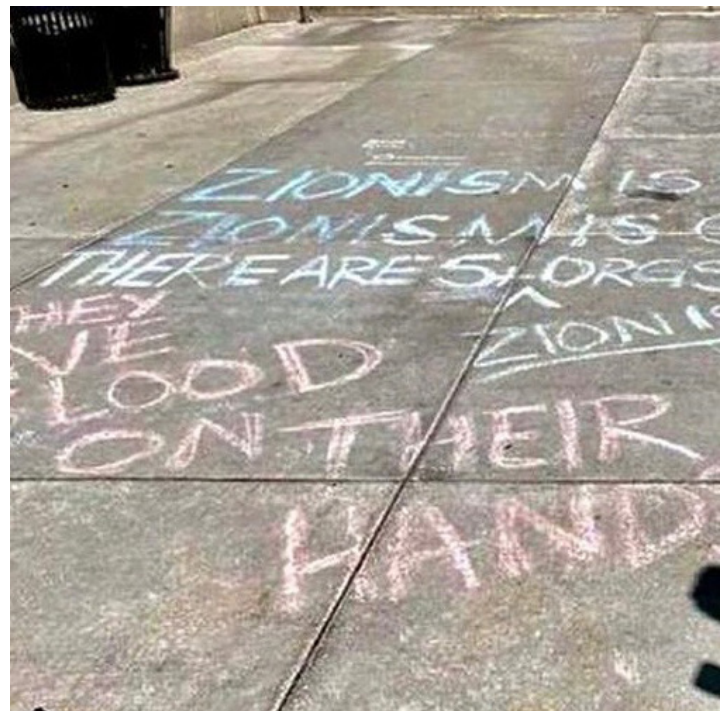 ZIONISM IS
ZIONISM IS
THERE ARE 5+ ORGS
^
ZIONI
THEY
BLOOD
ON THEIR
HAND